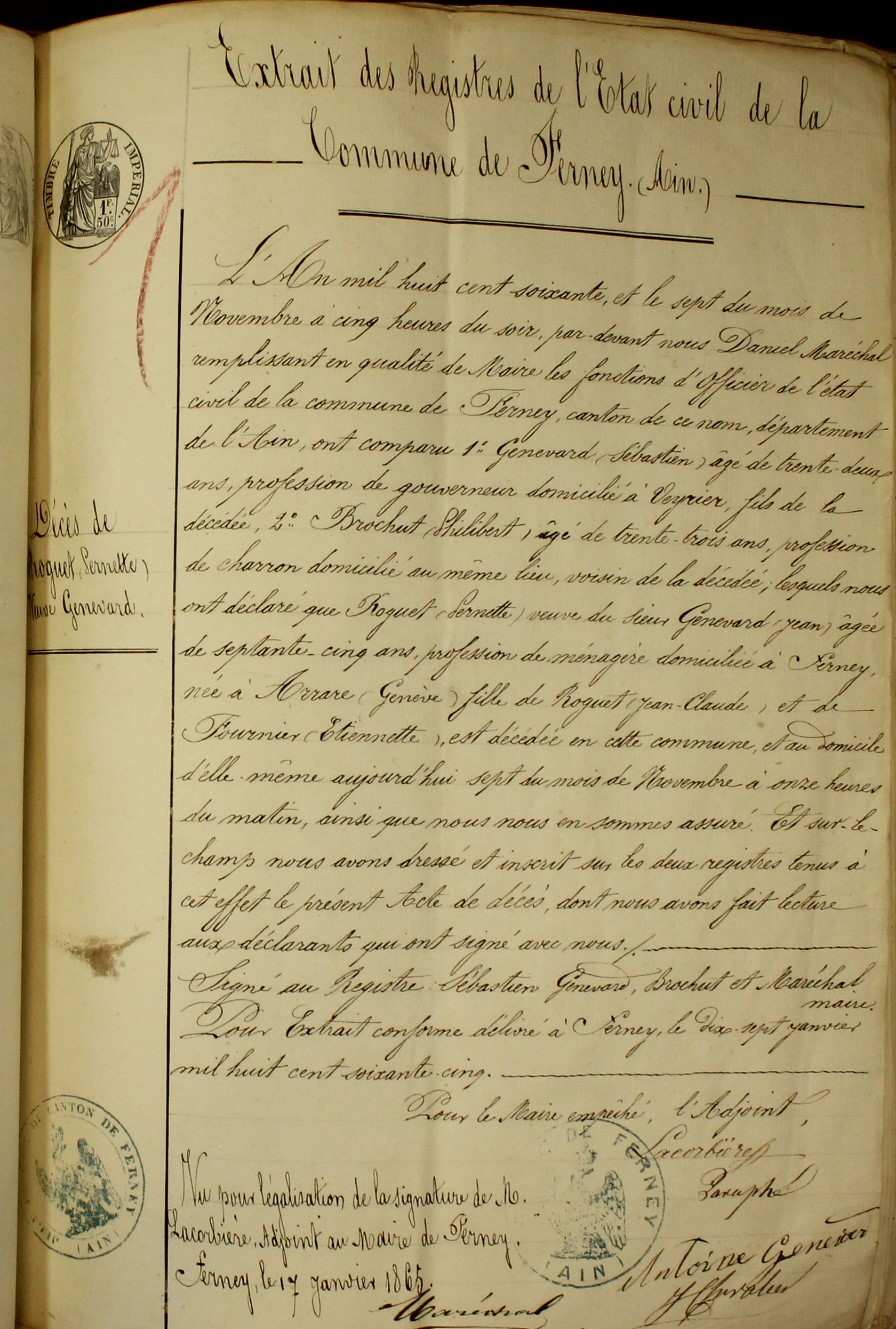 Extrait des Registres de l'Etat civil de la
Commune de Ferney. (Ain.)
TIMBRE IMPERIAL.
1F
50c
L'An mil huit cent soixante, et le sept du mois de
Novembre à cinq heures du soir, par-devant nous Daniel Maréchal
remplissant en qualité de Maire les fonctions d'Officier de l'état
civil de la commune de Ferney, canton de ce nom, département
de l'Ain, ont comparu 1° Genevard (Sébastien) âgé de trente-deux
ans, profession de gouverneur domicilié à Veyrier, fils de la
décédée, 2° Brochut Philibert, âgé de trente-trois ans, profession
de charron domicilié au même lieu, voisin de la décédée; lesquels nous
ont déclaré que Roguet (Pernette) veuve du sieur Genevard (Jean) âgée
de septante-cinq ans, profession de ménagère domiciliée à Ferney,
née à Arrare (Genève) fille de Roguet (Jean-Claude) et de
Fournier (Etiennette), est décédée en cette commune, et au domicile
d'elle-même aujourd'hui sept du mois de Novembre à onze heures
du matin, ainsi que nous nous en sommes assuré. Et sur-le-
champ nous avons dressé et inscrit sur les deux registres tenus à
cet effet le présent Acte de décès, dont nous avons fait lecture
aux déclarants qui ont signé avec nous./.
Signé au Registre Sébastien Génevard, Brochut et Maréchal
maire.
Pour Extrait conforme délivré à Ferney, le dix-sept janvier
mil huit cent soixante-cinq.
Décès de
Roguet, Pernette)
Veuve Genevard.
Pour le Maire empêché, l'Adjoint,
Lacorbière
Paraphé
Vu pour légalisation de la signature de M.
Lacorbière, Adjoint au Maire de Ferney.
Ferney, le 17 janvier 1865.
Maréchal
Antoine Genevar
CANTON DE FERNEY
(AIN)
DE FERNEY
(AIN)